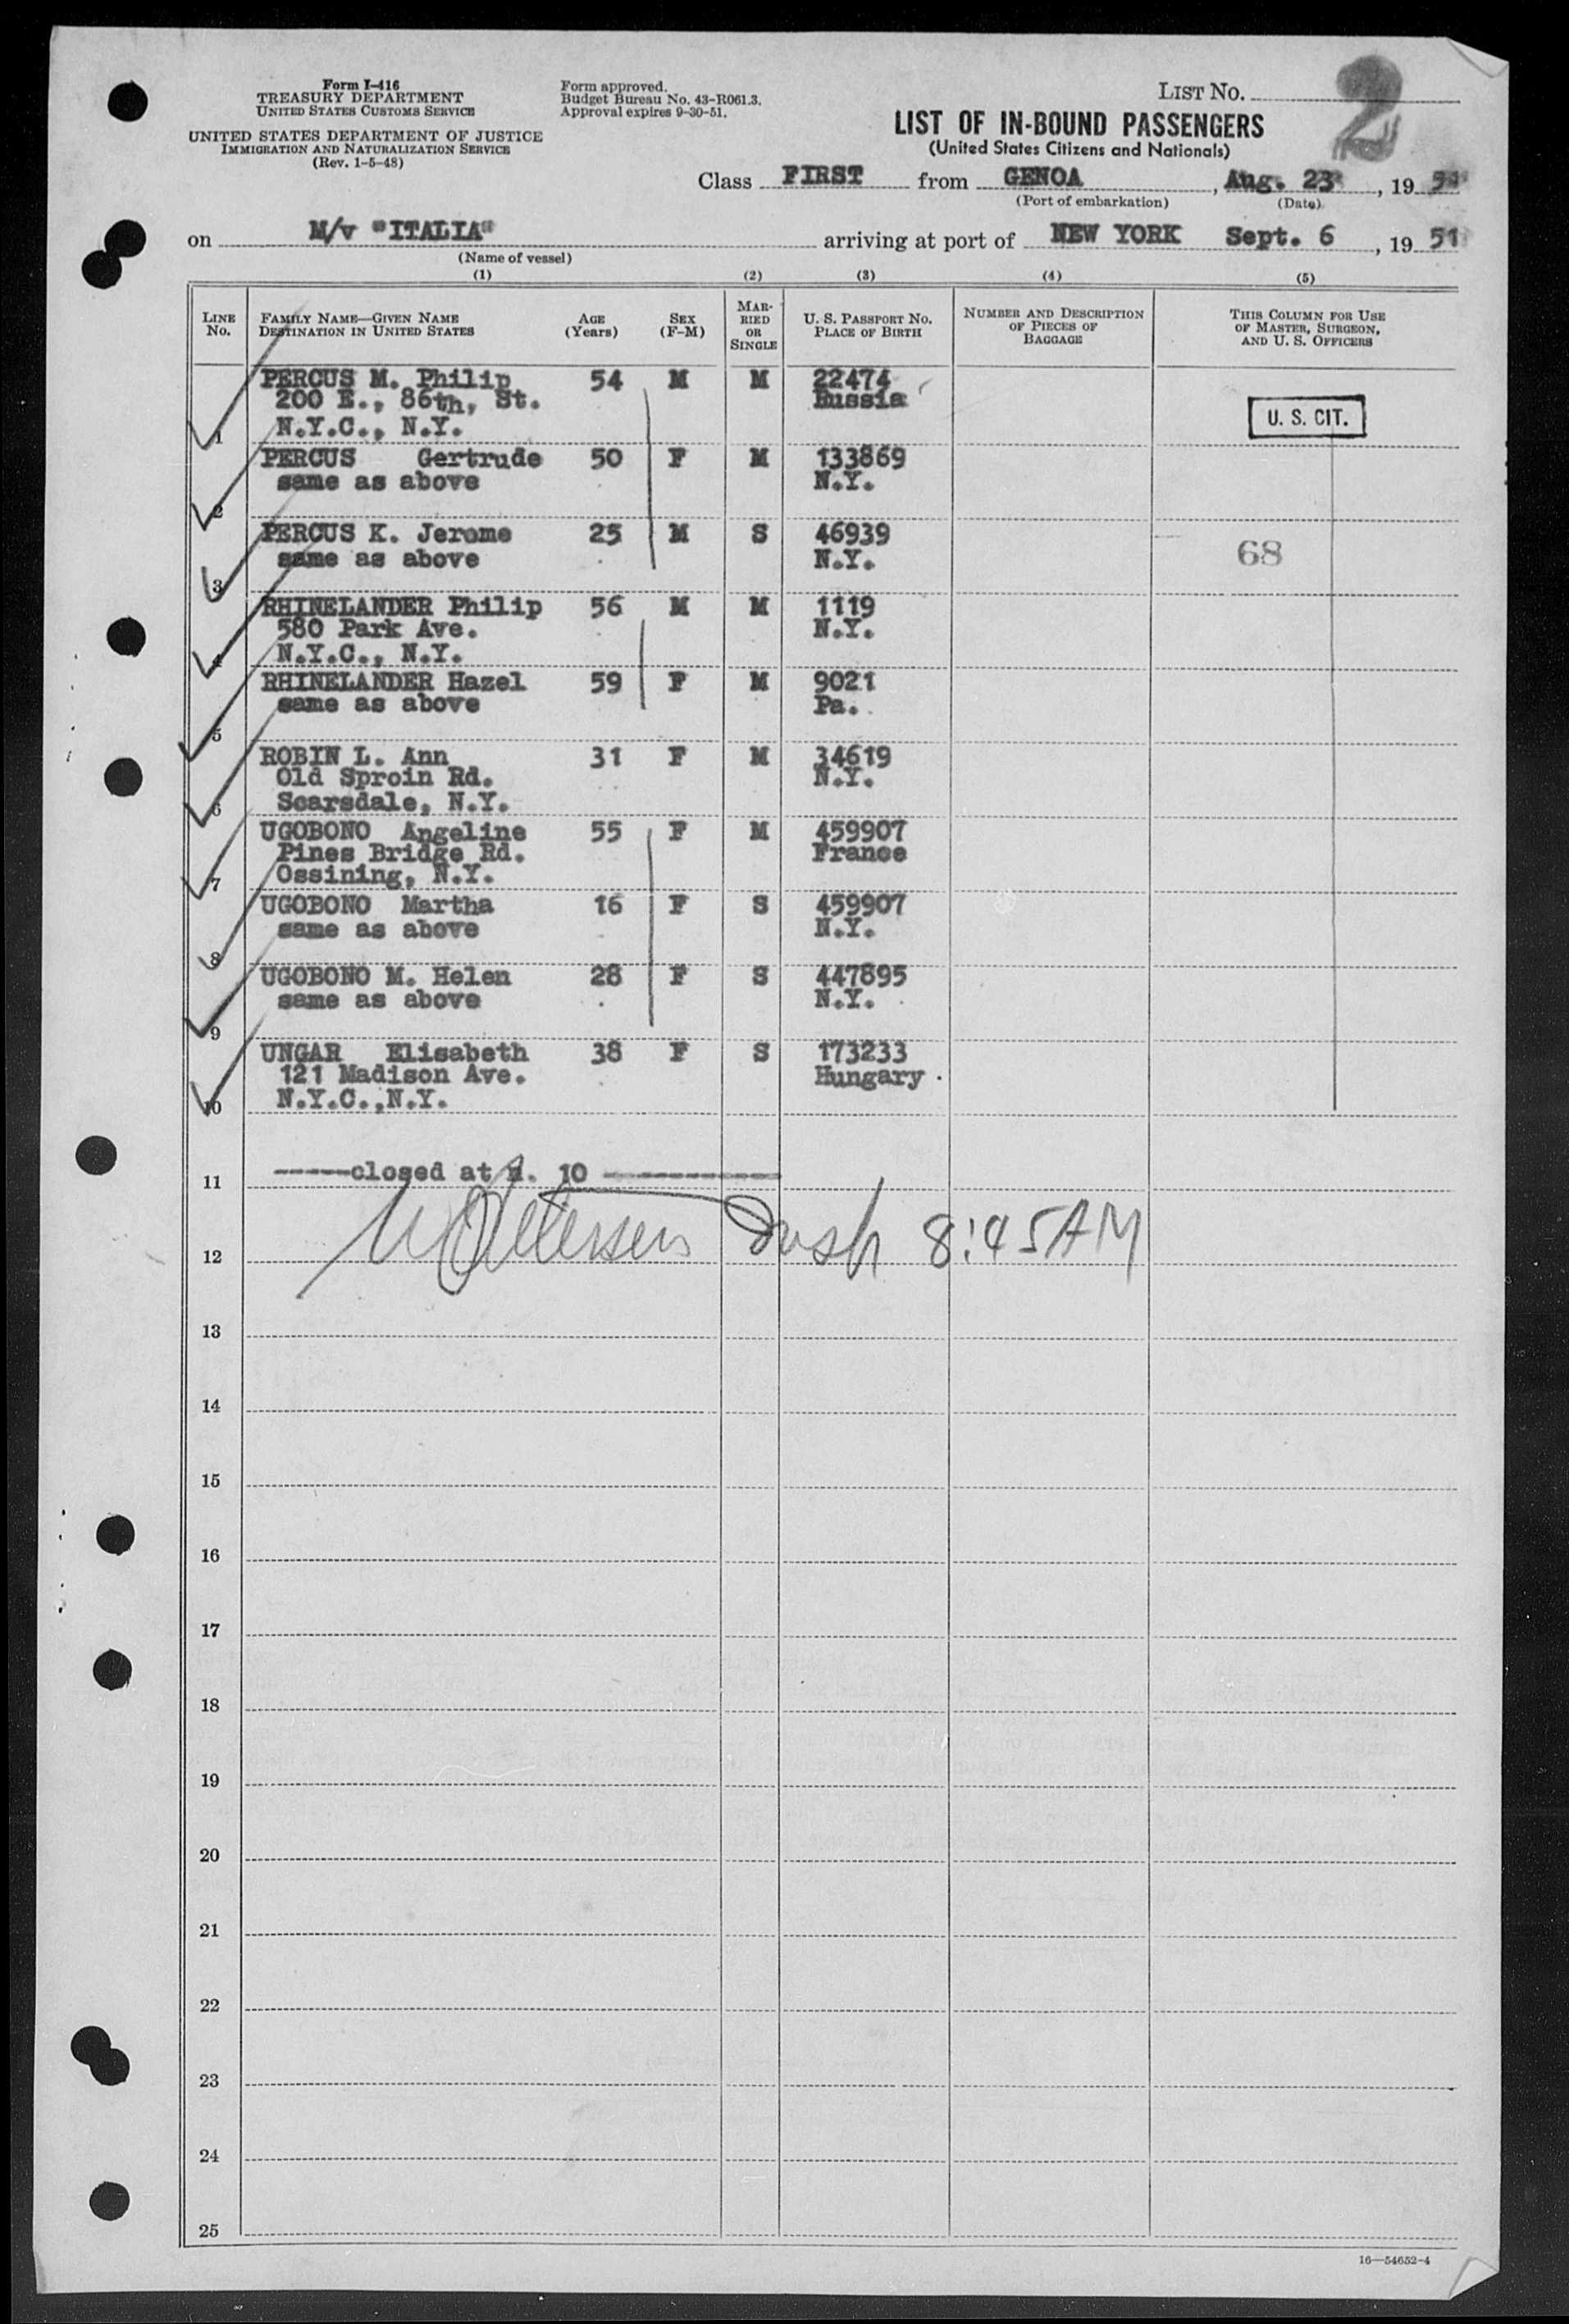 Form I-416
TREASURY DEPARTMENT
UNITED STATES CUSTOMS SERVICE
UNITED STATES DEPARTMENT OF JUSTICE
IMMIGRATION AND NATURALIZATION SERVICE
(Rev. 1-5-48)
Form approved.
Budget Bureau No. 43-R061.3.
Approval expires 9-30-51.
LIST NO. 2
LIST OF IN-BOUND PASSENGERS
(United States Citizens and Nationals)
Class FIRST from GENOA, Aug. 23, 19 51
(Port of embarkation) (Date)
on M/v "ITALIA" arriving at port of NEW YORK Sept. 6, 19 51
(Name of vessel)
(1) (2) (3) (4) (5)
LINE NO.
FAMILY NAME—GIVEN NAME
DESTINATION IN UNITED STATES
AGE (Years)
SEX (F-M)
MARRIED OR SINGLE
U. S. PASSPORT NO.
PLACE OF BIRTH
NUMBER AND DESCRIPTION OF PIECES OF BAGGAGE
THIS COLUMN FOR USE OF MASTER, SURGEON, AND U. S. OFFICERS
PERCUS M. Philip 54 M M 22474
200 E., 86th, St. Russia
1 N.Y.C., N.Y. U. S. CIT.
PERCUS Gertrude 50 F M 133869
same as above N.Y.
2
PERCUS K. Jerome 25 M S 46939
same as above N.Y. 68
3
RHINELANDER Philip 56 M M 1119
580 Park Ave. N.Y.
4 N.Y.C., N.Y.
RHINELANDER Hazel 59 F M 9021
same as above Pa.
5
ROBIN L. Ann 31 F M 34619
Old Sproin Rd. N.Y.
6 Scarsdale, N.Y.
UGOBONO Angeline 55 F M 459907
Pines Bridge Rd. France
7 Ossining, N.Y.
UGOBONO Martha 16 F S 459907
same as above N.Y.
8
UGOBONO M. Helen 28 F S 447895
same as above N.Y.
9
UNGAR Elisabeth 38 F S 173233
121 Madison Ave. Hungary
10 N.Y.C.,N.Y.
11 -----closed at 10 -----
12 8:45AM
13
14
15
16
17
18
19
20
21
22
23
24
25
16—54652-4